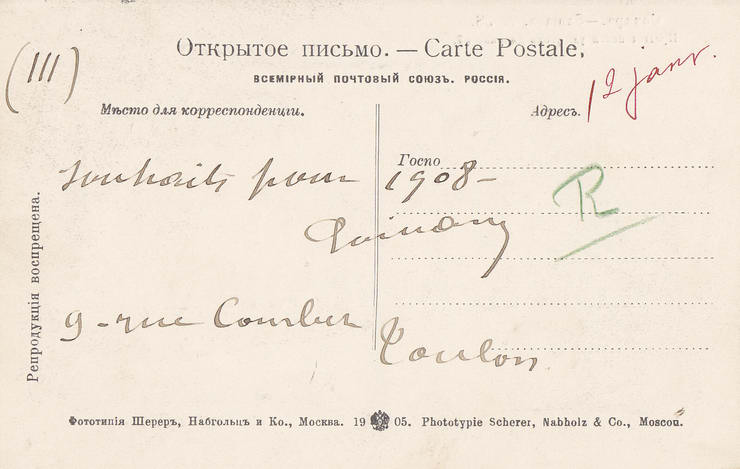 (111)
Открытое письмо. — Carte Postale.
ВСЕМІРНЫЙ ПОЧТОВЫЙ СОЮЗЪ. РОССІЯ.
12 janv.
Мѣсто для корреспонденціи.
Адресъ.
Госпо
Souhaits pour 1908 -
R
9 - rue Courbet
Toulon
Репродукція воспрещена.
Фототипія Шереръ, Набгольцъ и Ко., Москва. 1905. Phototypie Scherer, Nabholz & Co., Moscou.